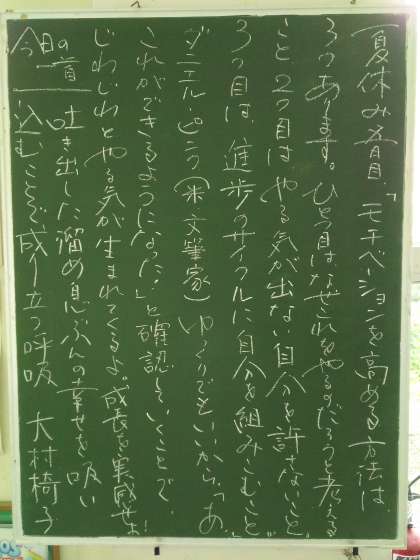 夏休み五日目、「モチベーションを高める方法は
3つあります。ひとつ目はなぜこれをやるのだろうと考える
こと、2つ目は、やる気が出ない自分を許さないこと。
3つ目は、進歩のサイクルに自分を組みこむこと」
ダニエル・ピンク(米文筆家)ゆっくりでもいいから、「あ、
これができるようになった!」と確認していくことで、
じわじわとやる気が生まれてくるよ。成長を実感せよ!
今日の一首 吐き出した溜め息ぶんの幸せを吸い
込むことで成り立つ呼吸 大村椅子